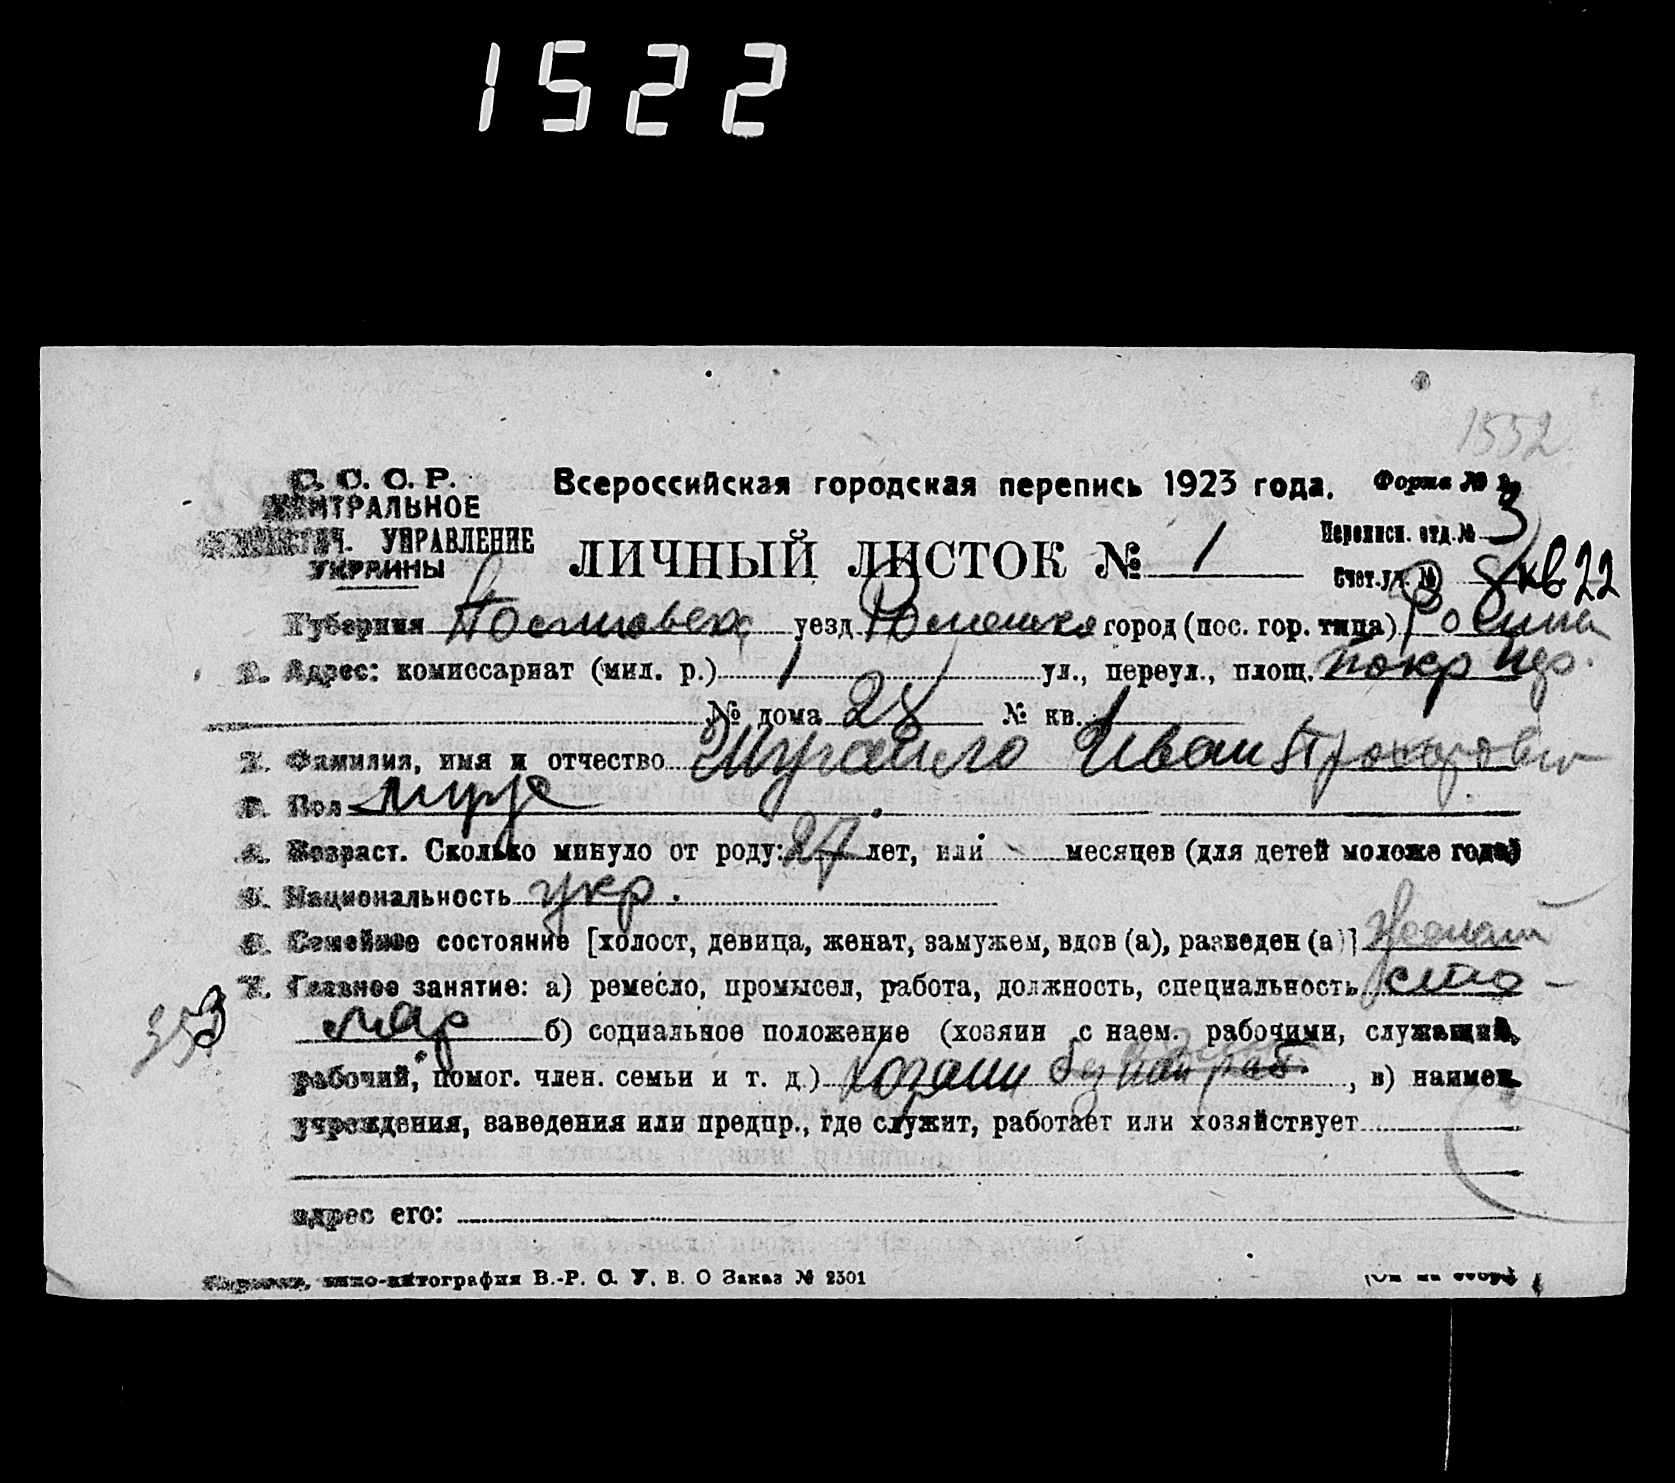 1522
1552
С. С. С. Р. Всероссийская городская перепись 1923 года. Форма №
ЦЕНТРАЛЬНОЕ
УПРАВЛЕНИЕ ЛИЧНЫЙ ЛИСТОК № 1 Переписн. отд. № 3
УКРАИНЫ Счет. уч. № 8 кв 22
Губерния уезд город (пос. гор. типа)
Адрес: комиссариат (мил. р.) 1 ул., переул., площ. покр пер.
№ дома 28 № кв. 1
Фамилия, имя и отчество Иван
Пол муж
Возраст. Сколько минуло от роду: 27 лет, или месяцев (для детей моложе года)
Национальность укр.
Семейное состояние [холост, девица, женат, замужем, вдов (а), разведен (а)] Женат
Главное занятие: а) ремесло, промысел, работа, должность, специальность сто-
353 ляр б) социальное положение (хозяин с наем. рабочими, служащий,
рабочий, помог. член. семьи и т. д.) Хозяин без наем раб. , в) наимен.
учреждения, заведения или предпр., где служит, работает или хозяйствует
адрес его:
типо-литография В.-Р. С. У. В. О Заказ № 2301